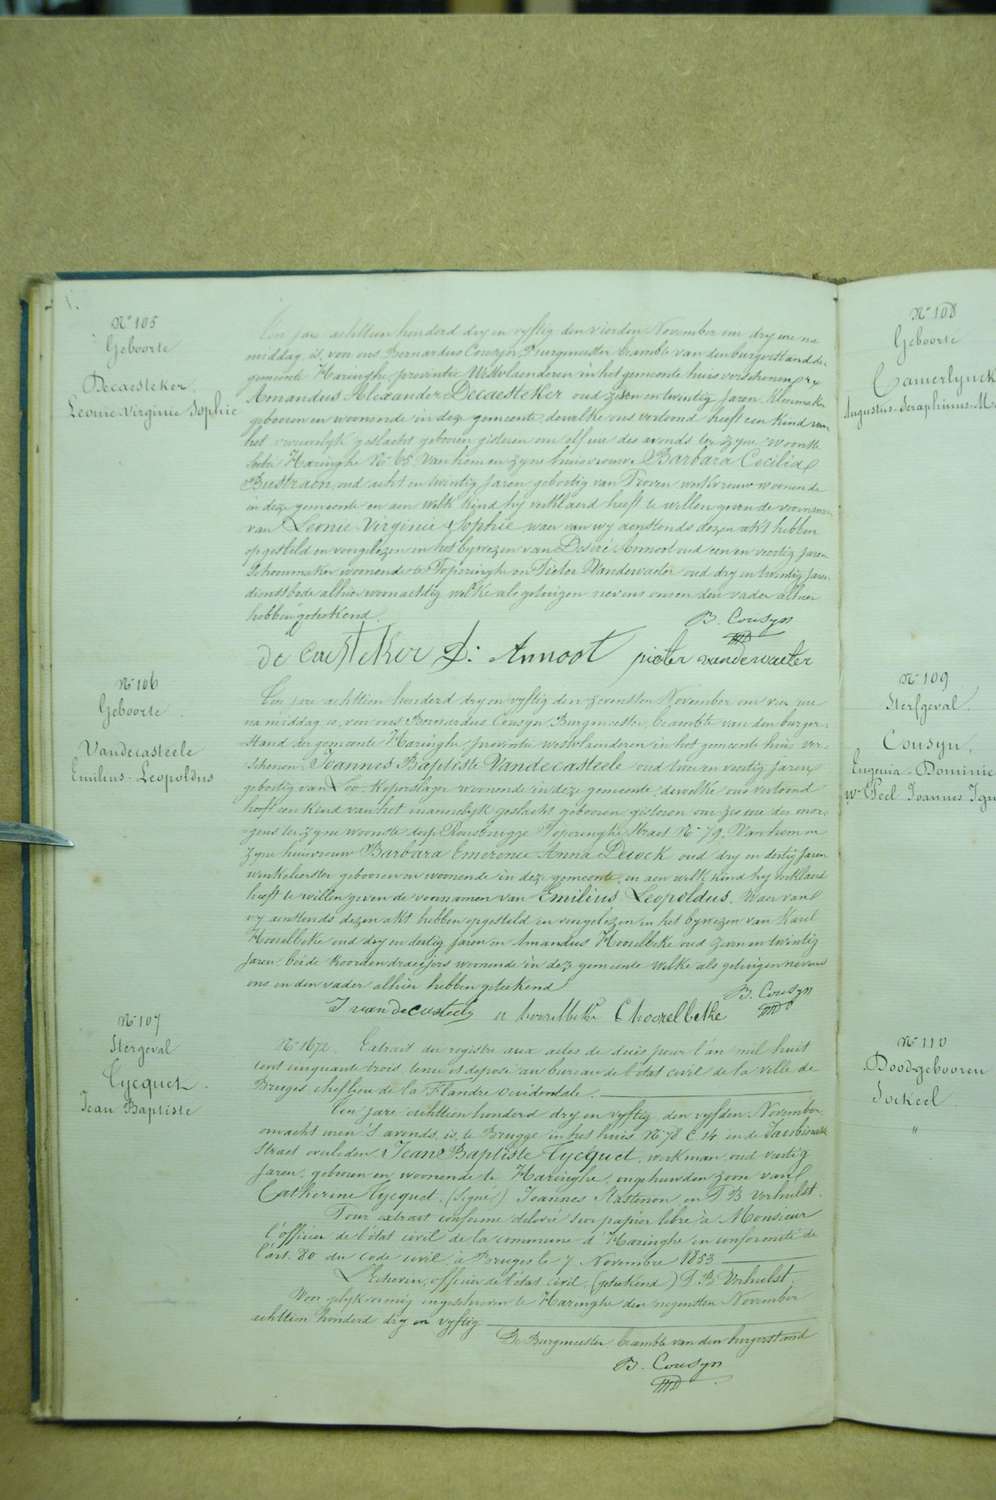 N° 105
Geboorte
Decaesteker
Leonie Virginie Sophie
Ten jare achttien honderd dry en vyftig den vierden November om dry ure na
middag, is, voor ons Bernardus Cousyn Burgmeester beambte van den burgerstand der
gemeente Haringhe provintie Westvlaenderen in het gemeente huis verschenen
Amandus Alexander Decaesteker oud zeven en twintig Jaren,
geboren en woonende in deze gemeente, dewelke ons vertoond heeft een kind van
het vrouwelyk geslacht geboren gisteren om elf ure des avonds ter zyne woonste
Haringhe N° 65 van hem en zyne huisvrouw Barbara Cecilia
Bustraen, oud acht en twintig Jaren geboortig van woonende
in deze gemeente en aen welk kind hy verklaerd heeft te willen geven de voornamen
van Leonie Virginie Sophie, waer van wy aenstonds dezen akt hebben
opgesteld en voorgelezen in het bywezen van Desiré Annoot oud een en veertig Jaren
Schoenmaker woonende te Poperinghe en Pieter Vandewaeter oud dry en twintig Jaren
dienstbode alhier woonachtig welke als getuigen nevens ons en den vader alhier
hebben geteekend.
B. Cousyn
De Caesteker D: Annoot pieter vandewaeter
N° 106
Geboorte
Vandecasteele
Emilius Leopoldus
Ten jare achttien honderd dry en vyftig den zevensten November om vier ure
na middag is, voor ons Bernardus Cousyn Burgmeester, beambte van den burger-
stand der gemeente Haringhe, provintie westvlaenderen in het gemeente huis ver-
schenen Joannes Baptiste Vandecasteele oud twee en veertig Jaren
geboortig van Loo, Koperslager woonende in deze gemeente, dewelke ons vertoond
heeft een kind van het mannelyk geslacht geboren gisteren om zes ure des mor-
gens ter zyne woonste dorp Rousbrugge Poperinghe Straet N° 79, van hem en
zyne huisvrouw Barbara Emerence Anna Dewck oud dry en dertig Jaren
winkelierster geboren en woonende in deze gemeente, en aen welk kind hy verklaerd
heeft te willen geven de voornamen van Emilius Leopoldus. Waer van
wy aenstonds dezen akt hebben opgesteld en voorgelezen in het bywezen van Karel
Hoorelbeke oud dry en dertig Jaren en Amandus Hoorelbeke oud zeven en twintig
Jaren beide Koordendraeijers woonende in deze gemeente welke als getuigen nevens
ons en den vader alhier hebben geteekend
B. Cousyn
J vandecasteele a hoorelbeke C hoorelbeke
N° 107
Stergeval
Cycquet
Jean Baptiste
N° 1672. Extrait du registre aux actes de décès pour l'an mil huit
cent cinquante trois, tenu et déposé au bureau de l'état civil de la ville de
Bruges, cheflieu de la Flandre Occidentale.
Ten jare achttien honderd dry en vyftig den vyfden November
om acht uren 's avonds, is, te Brugge in het huis N° 78 C. 14 in de
Straet overleden Jean Baptiste Cycquet, werkman, oud veertig
Jaren, geboren en woonende te Haringhe, ongehuwden zoon van
Catherine Cycquet. (Signé) Joannes en F B Verhulst.
Pour extrait conforme délivré sur papier libre à Monsieur
l'officier de l'état civil de la commune d'Haringhe en conformité de
l'art. 80 du Code civil, à Bruges le 7 Novembre 1853.
L'Echevin, officier de l'état civil, (geteekend) F. B. Verhulst.
Voor gelykvormig ingeschreven te Haringhe den negensten November
achttien honderd dry en vyftig
De Burgmeester beambte van den burgerstand
B. Cousyn
N° 108
Geboorte
Camerlynck
Augustus Seraphinus M
N° 109
Sterfgeval
Cousyn,
Eugenia Dominic
we Peel Joannes Ign
N° 110
Doodgebooren
Joekeel
"